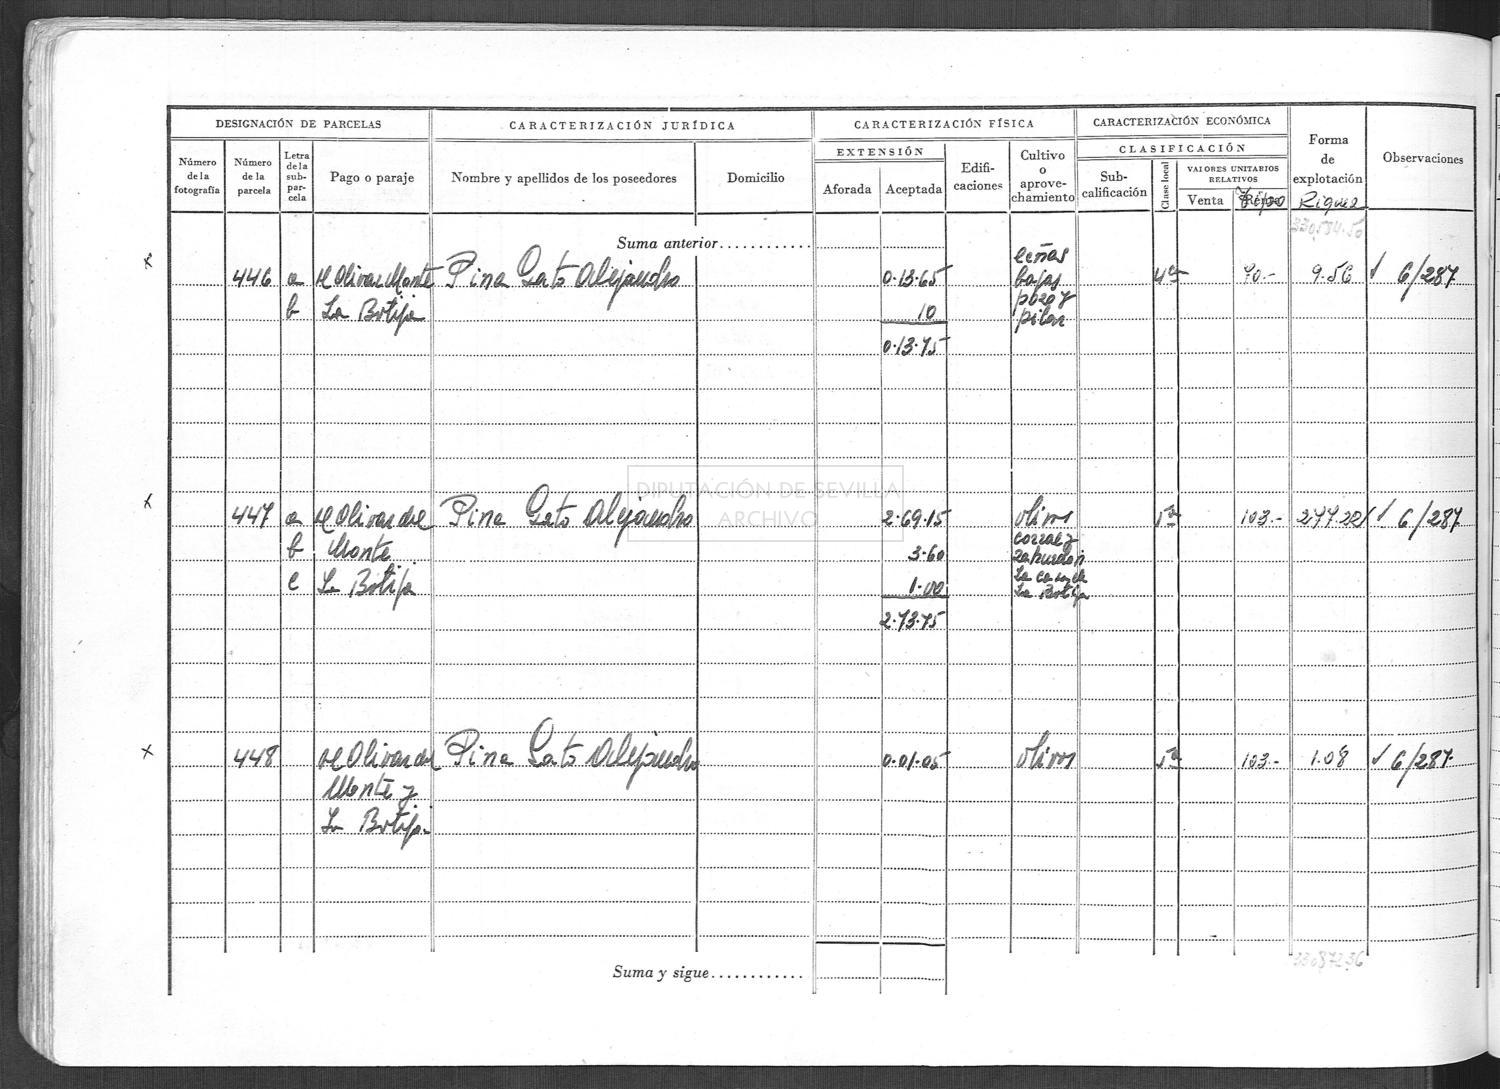 DESIGNACIÓN DE PARCELAS CARACTERIZACIÓN JURÍDICA CARACTERIZACIÓN FÍSICA CARACTERIZACIÓN ECONÓMICA
Número de la fotografía
Número de la parcela
Letra de la sub-par-cela
Pago o paraje
Nombre y apellidos de los poseedores
Domicilio
EXTENSIÓN
Aforada Aceptada
Edifi-caciones
Cultivo o aprove-chamiento
CLASIFICACIÓN
Sub-calificación
Clase local
VALORES UNITARIOS RELATIVOS
Venta Tipo
Forma de explotación
Riqueza
Observaciones
330.584.50
Suma anterior............
x 446 a Olivar Monte Pina Gato Alejandro 0.13.65 leñas bajas 4ª 70.- 9.56 √ 6/287
b La Botija 10 pozo y pilar
0.13.75
DIPUTACIÓN DE SEVILLA
ARCHIVO
x 447 a Olivar del Pina Gato Alejandro 2.69.15 olivos 5ª 103.- 277.22 √ 6/287
b Monte 3.60 corral y zahurdon
c La Botija 1.00 La casa de La Botija
2.73.75
x 448 Olivar del Pina Gato Alejandro 0.01.05 olivos 5ª 103.- 1.08 √ 6/287
Monte y
La Botija
Suma y sigue............
330.872.36